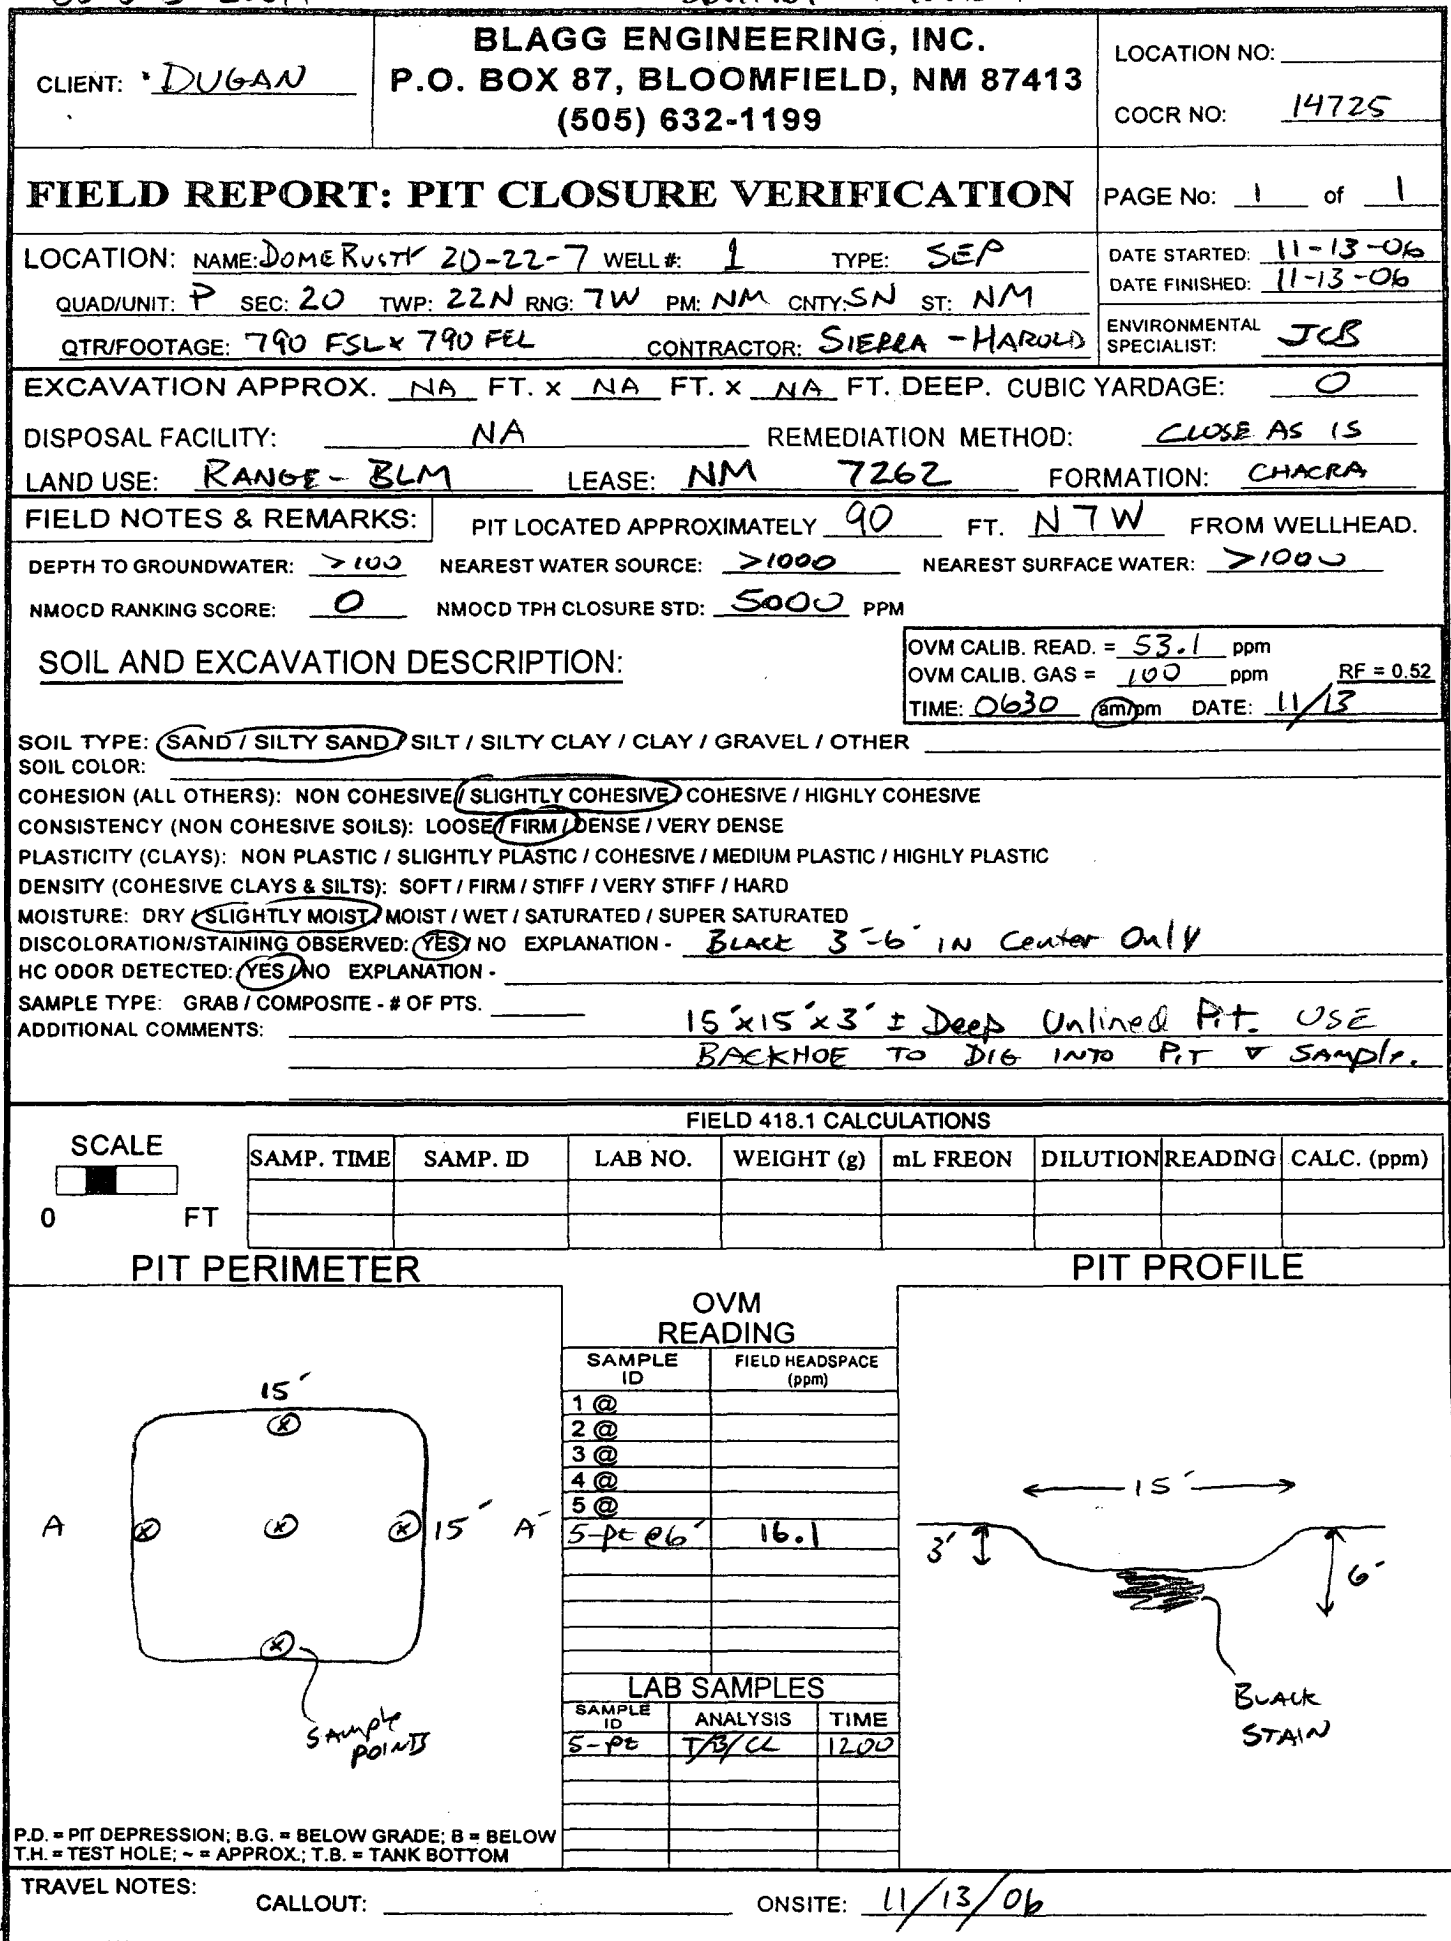 BLAGG ENGINEERING, INC.
CLIENT: DUGAN
P.O. BOX 87, BLOOMFIELD, NM 87413
(505) 632-1199
LOCATION NO:
COCR NO: 14725
FIELD REPORT: PIT CLOSURE VERIFICATION
PAGE No: 1 of 1
LOCATION: NAME: DOME RUSTY 20-22-7 WELL #: 1 TYPE: SEP
QUAD/UNIT: P SEC: 20 TWP: 22N RNG: 7W PM: NM CNTY: SN ST: NM
QTR/FOOTAGE: 790 FSL x 790 FEL CONTRACTOR: SIERRA - HAROLD
DATE STARTED: 11-13-06
DATE FINISHED: 11-13-06
ENVIRONMENTAL
SPECIALIST: JCB
EXCAVATION APPROX. NA FT. x NA FT. x NA FT. DEEP. CUBIC YARDAGE: 0
DISPOSAL FACILITY: NA REMEDIATION METHOD: CLOSE AS IS
LAND USE: RANGE - BLM LEASE: NM 7262 FORMATION: CHACRA
FIELD NOTES & REMARKS: PIT LOCATED APPROXIMATELY 90 FT. N7W FROM WELLHEAD.
DEPTH TO GROUNDWATER: >100 NEAREST WATER SOURCE: >1000 NEAREST SURFACE WATER: >1000
NMOCD RANKING SCORE: 0 NMOCD TPH CLOSURE STD: 5000 PPM
SOIL AND EXCAVATION DESCRIPTION:
OVM CALIB. READ. = 53.1 ppm
OVM CALIB. GAS = 100 ppm RF = 0.52
TIME: 0630 am/pm DATE: 11/13
SOIL TYPE: SAND / SILTY SAND / SILT / SILTY CLAY / CLAY / GRAVEL / OTHER
SOIL COLOR:
COHESION (ALL OTHERS): NON COHESIVE / SLIGHTLY COHESIVE / COHESIVE / HIGHLY COHESIVE
CONSISTENCY (NON COHESIVE SOILS): LOOSE / FIRM / DENSE / VERY DENSE
PLASTICITY (CLAYS): NON PLASTIC / SLIGHTLY PLASTIC / COHESIVE / MEDIUM PLASTIC / HIGHLY PLASTIC
DENSITY (COHESIVE CLAYS & SILTS): SOFT / FIRM / STIFF / VERY STIFF / HARD
MOISTURE: DRY / SLIGHTLY MOIST / MOIST / WET / SATURATED / SUPER SATURATED
DISCOLORATION/STAINING OBSERVED: YES / NO EXPLANATION - BLACK 3'-6' IN Center Only
HC ODOR DETECTED: YES / NO EXPLANATION -
SAMPLE TYPE: GRAB / COMPOSITE - # OF PTS.
ADDITIONAL COMMENTS: 15'x15'x3' ± Deep Unlined Pit. USE
BACKHOE TO DIG INTO PIT & SAMPLE.
FIELD 418.1 CALCULATIONS
SCALE
0 FT
SAMP. TIME SAMP. ID LAB NO. WEIGHT (g) mL FREON DILUTION READING CALC. (ppm)
PIT PERIMETER
PIT PROFILE
OVM
READING
SAMPLE
ID
FIELD HEADSPACE
(ppm)
1 @
2 @
3 @
4 @
5 @
5-pt @ 6' 16.1
15'
A
15'
A'
SAMPLE
POINTS
15'
3'
6'
BLACK
STAIN
LAB SAMPLES
SAMPLE
ID
ANALYSIS TIME
5-pt T/B/CL 1200
P.D. = PIT DEPRESSION; B.G. = BELOW GRADE; B = BELOW
T.H. = TEST HOLE; ~ = APPROX.; T.B. = TANK BOTTOM
TRAVEL NOTES:
CALLOUT: ONSITE: 11/13/06